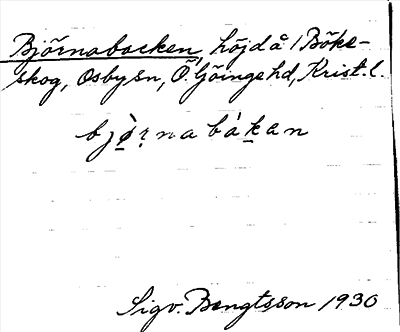 Björnabacken, höjd å 1 Böke-
skog, Osby sn, Ö. Göinge hd, Krist. l.
bjö̀rnabákan
Sigv. Bengtsson 1930